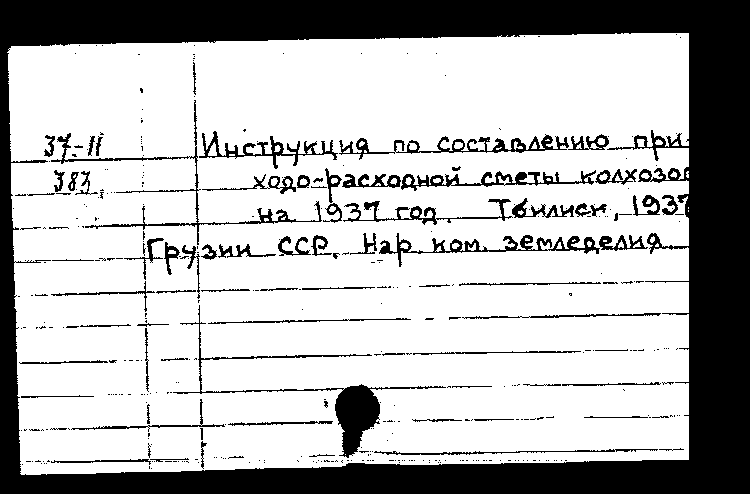 37-11 Инструкция по составлению при-
383. ходо-расходной сметы колхозов
на 1937 год. Тбилиси, 1937
Грузии ССР. Нар. ком. земледелия